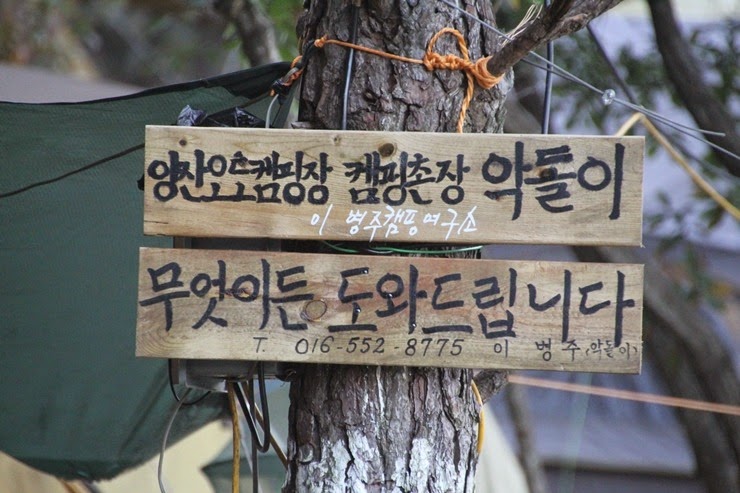 양잔오토캠핑장 캠핑촌장 악돌이
이 병주캠핑연구소
무엇이든 도와드립니다
T. 016-552-8775 이 병주 (악돌이)